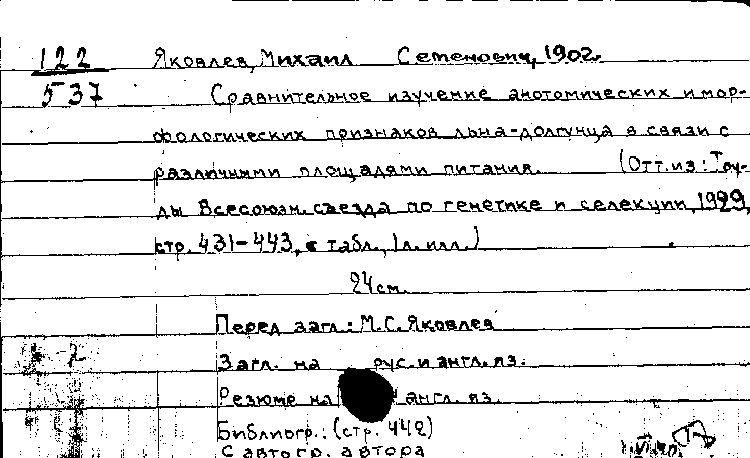 122 Яковлев, Михаил Семенович, 1902.
537 Сравнительное изучение анотомических и мор-
фологических признаков льна-долгунца в связи с
различными площадями питания. (Отт. из: Тру-
ды Всесоюзн. съезда по генетике и селекции, 1929,
стр. 431-443, с табл., 1 л. илл.)
24 см.
Перед загл.: М.С. Яковлев
Загл. на рус. и англ. яз.
Резюме на англ. яз.
Библиогр.: (стр. 442)
С автогр. автора